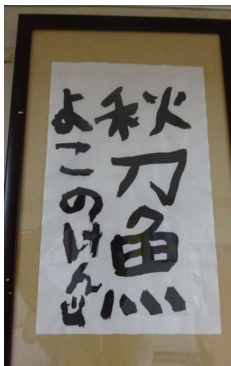 秋刀魚
よこのけんじ